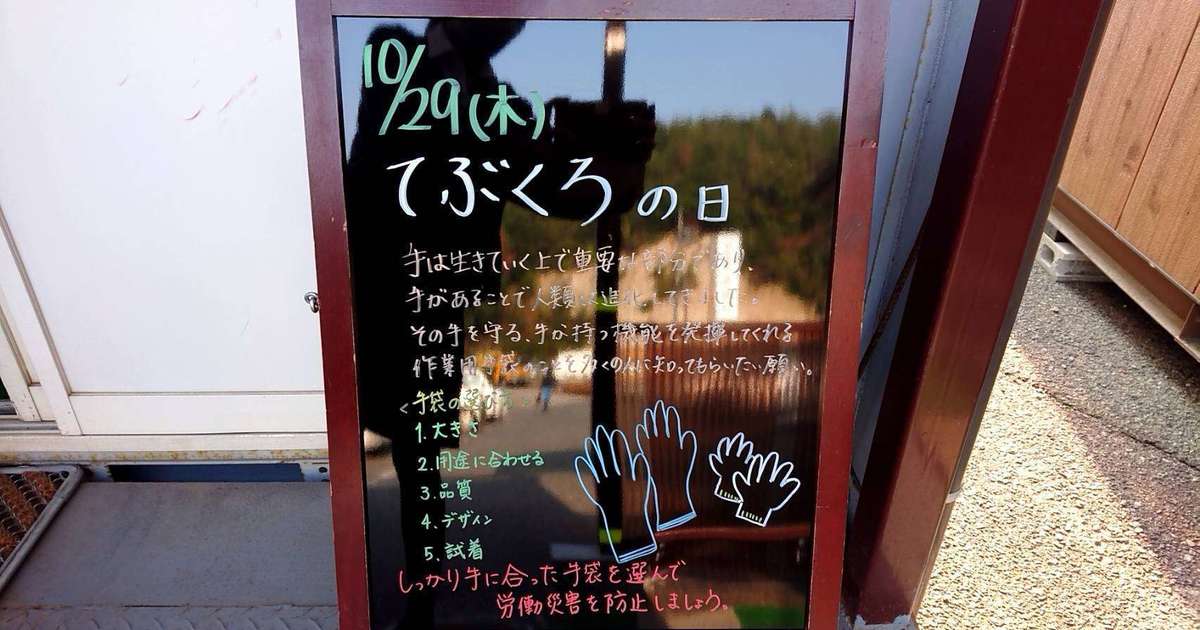 10/29(木)
てぶくろの日
手は生きていく上で重要な部分であり、
手があることで人類は進化してきました。
その手を守る、手が持つ機能を発揮してくれる
作業用手袋のことを多くの人に知ってもらいたい願い。
<手袋の選び方>
1.大きさ
2.用途に合わせる
3.品質
4.デザイン
5.試着
しっかり手に合った手袋を選んで
労働災害を防止しましょう。